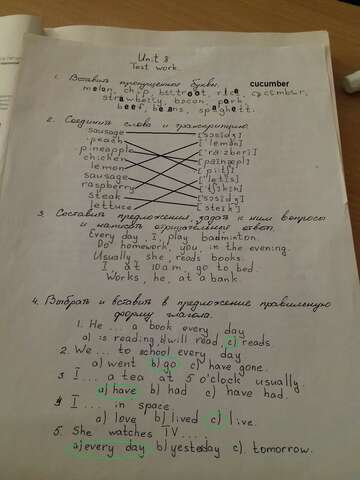 Unit 8
Test work.
1. Вставить пропущенные буквы. cucumber
melon, chip, beetroot, rice, cucumber,
strawberry, bacon, pork,
beef, beans, spaghetti.
2. Соединить слова и транскрипцию.
sausage ['sɔsidʒ]
peach ['lemən]
pineapple ['ra:zbəri]
chicken ['painæpl]
lemon [pi:tʃ]
sausage ['letis]
raspberry ['tʃikin]
steak ['sɔsidʒ]
lettuce [steik]
3. Составить предложения, задать к ним вопросы
и написать отрицательный ответ.
Every day, I, play badminton.
Do homework, you, in the evening.
Usually, she, reads books.
I, at 10 a.m., go to bed.
Works, he, at a bank.
4. Выбрать и вставить в предложение правильную
форму глагола.
1. He ... a book every day
a) is reading b) will read, c) reads
2. We ... to school every day
a) went b) go c) have gone.
3 I ... a tea at 5 o'clock usually
a) have b) had c) have had.
4 I ... in space
a) love b) lived c) live.
5. She watches TV ...
a) every day b) yesteday c). tomorrow.